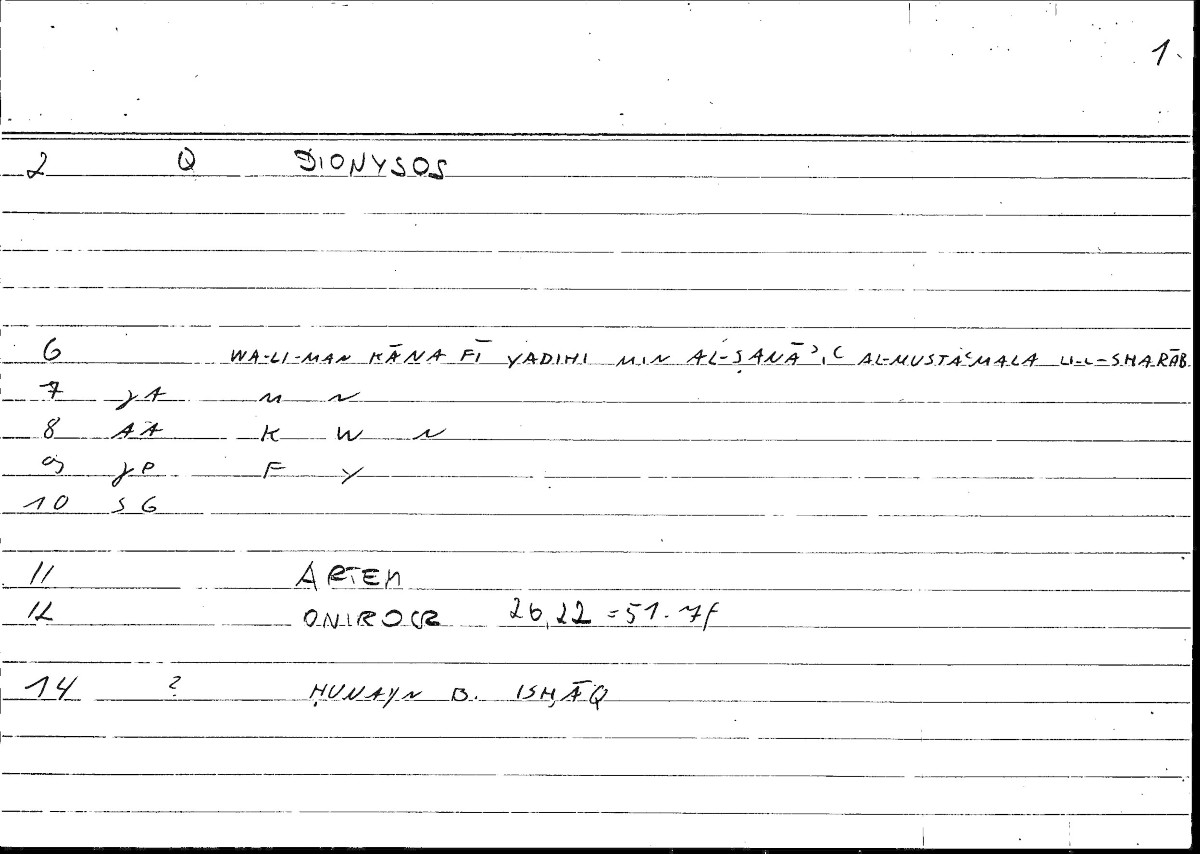 1.
2 Q DIONYSOS
6 WA-LI-MAN KĀNA FĪ YADIHI MIN AL-ṢANĀʾIʿ AL-MUSTAʿMALA LI-L-SHARĀB
7 JA M N
8 AA K W N
9 JP F Y
10 SG
11 ARTEM
12 ONIROCR 26,22 = 51.7f
14 2 ḤUNAYN B. ISḤĀQ